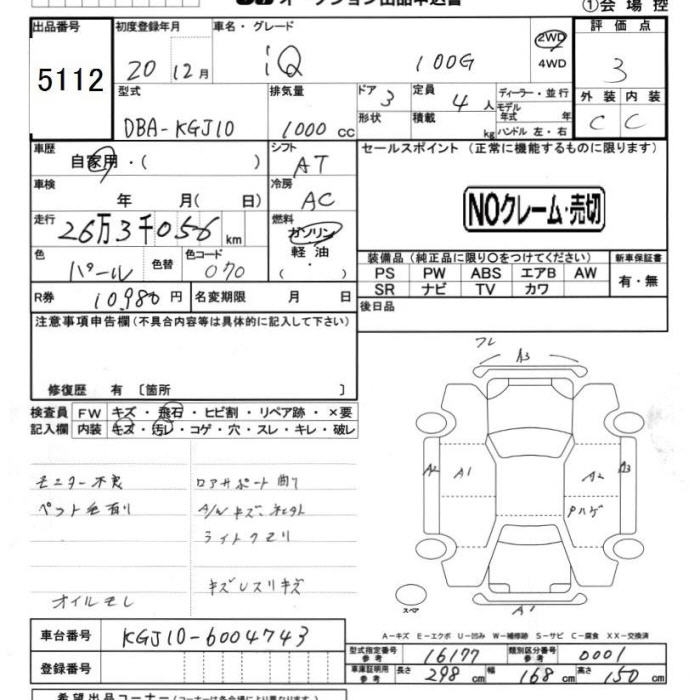 ①会場控
出品番号 初度登録年月 車名・グレード 評価点
5112 20 12月 iQ 100G 2WD 4WD 3
型式 排気量 ドア 3 定員 4人 ディーラー・並行 外装 内装
DBA-KGJ10 1000cc 形状 積載 kg モデル年式 年 ハンドル 左・右 C C
車歴 自家用・( ) シフト AT セールスポイント (正常に機能するものに限ります)
車検 年 月( 日) 冷房 AC NOクレーム・売切
走行 26万3千056km 燃料 ガソリン 軽油 ( ・ )
装備品 (純正品に限り○をつけてください) 新車保証書
色 パール 色替 色コード 070 PS PW ABS エアB AW 有・無
SR ナビ TV カワ
R券 10,980円 名変期限 月 日 後日品
注意事項申告欄(不具合内容等は具体的に記入して下さい)
フレ
A3
修復歴 有 〔箇所 〕
検査員 FW キズ・飛石・ヒビ割・リペア跡・×要
記入欄 内装 キズ・汚レ・コゲ・穴・スレ・キレ・破レ
A2 A1 A2 A3
モニター不良 ロアサポート曲り
ペット毛有り A/Wキズ、
Pハゲ
ライトクモリ
キズUスリキズ
オイルモレ
スペア
A1
A-キズ E-エクボ U-凹み W-補修跡 S-サビ C-腐食 XX-交換済
車台番号 KGJ10-6004743
型式指定番号 参考 16177 類別区分番号 参考 0001
登録番号 車庫証明用 参考 長さ 298cm 幅 168cm 高さ 150cm
希望出品コーナー